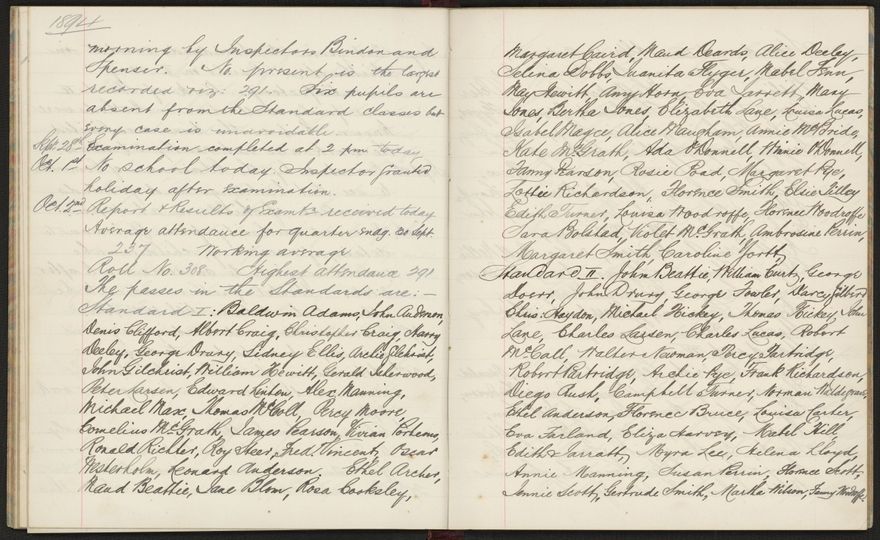 1894
morning by Inspectors Bindon and
Spenser. No. present is the largest
recorded viz: 291. Six pupils are
absent from the Standard classes but
every case is unavoidable.
Sept 28th Examination completed at 2 pm today
Oct. 1st No school today. Inspector granted
holiday after examination.
Oct 2nd Report & Results of Examtn received today
Average attendance for quarter endg. 30 Sept
237 Working average
Roll No. 308 Highest attendance 291
The passes in the Standards are:—
Standard I: Baldwin Adams, John Anderson,
Denis Clifford, Albert Craig, Christopher Craig, Harry
Deeley, George Drury, Sidney Ellis, Archie Gilchrist,
John Gilchrist, William Hewitt, Gerald Isherwood,
Peter Larsen, Edward Linton, Alex Manning,
Michael Max, Thomas McColl, Percy Moore,
Cornelius McGrath, James Pearson, Vivian
Ronald Richter, Roy Steer, Fred Vincent, Oscar
Westerholm, Leonard Anderson. Ethel Archer,
Maud Beattie, Jane Blom, Rosa Cooksley,
Margaret Caird, Maud Deards, Alice Deeley,
Selena Dobbs, Juanita Flyger, Mabel Fenn,
May Hewitt, Amy Horn, Eva Jarrett, Mary
Jones, Bertha Jones, Elizabeth Lane, Louisa Lucas,
Isabel Magee, Alice Maugham, Annie McBride,
Kate McGrath, Ada O'Donnell, Winnie O'Donnell,
Fanny Pearson, Rosie Poad, Margaret Pye,
Lottie Richardson, Florence Smith, Elsie Tilley
Edith Turner, Louisa Woodroffe, Florence Woodroffe
Sara Bolstad, Violet McGrath, Ambrosine Perrin,
Margaret Smith, Caroline
Standard II. John Beattie, William Curt, George
Doerr, John Drury, George Fowler, Darcy Gilbert
Chris: Haydon, Michael Hickey, Thomas Hickey, John
Lane, Charles Larsen, Charles Lucas, Robert
McCall, Walter Newman, Percy Partridge,
Robert Partridge, Archie Pye, Frank Richardson,
Diego Rush, Campbell Turner, Norman
Ethel Anderson, Florence Bruce, Louisa Carter,
Eva Farland, Eliza Harvey, Mabel Hill
Edith Jarratt, Myra Lee, Helena Lloyd,
Annie Manning, Susan Perrin, Florence Scott,
Jennie Scott, Gertrude Smith, Martha Wilson, Fanny Woodroffe.